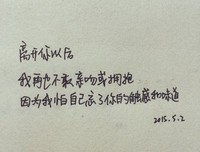 离开你以后
我再也不敢亲吻或拥抱
因为我怕自己忘了你的触感和味道
2015.5.2